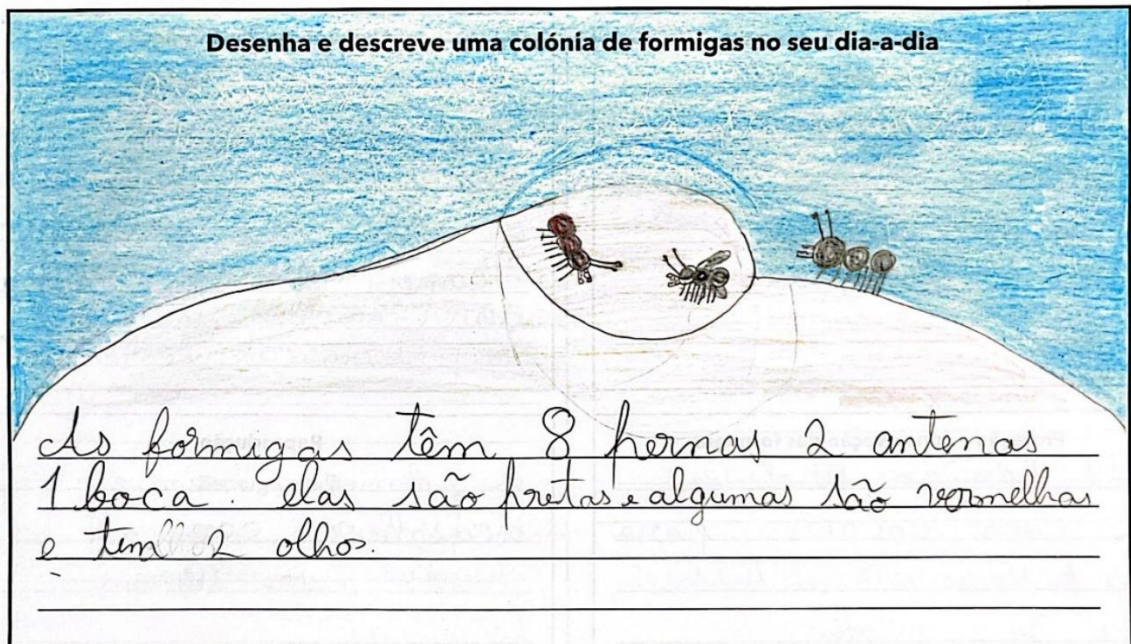 Desenha e descreve uma colónia de formigas no seu dia-a-dia
As formigas têm 8 pernas 2 antenas
1 boca elas são pretas e algumas são vermelhas
e tem 2 olhos.